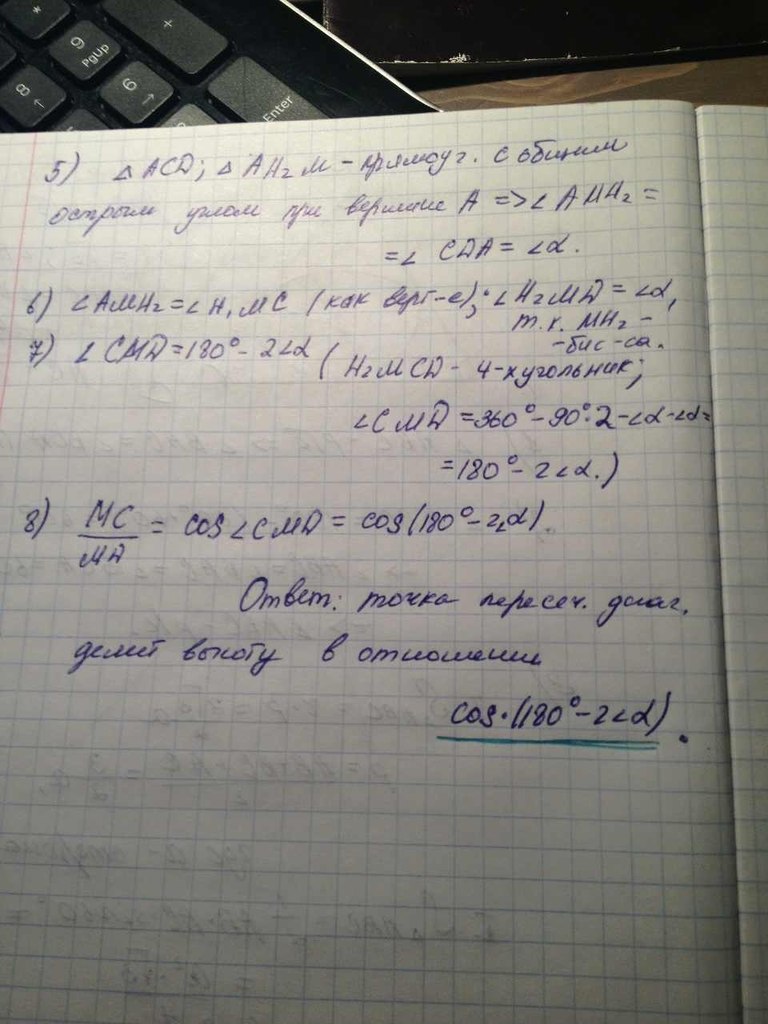 *
+
9
PgUp
8
↑
6
→
Enter
5) △ ACD; △ AH₂M - прямоуг. с общим
острым углом при вершине A => ∠ AMH₂ =
= ∠ CDA = ∠α.
6) ∠AMH₂ = ∠ H₁MC (как верт-е); ∠H₂MD = ∠α,
т.к. MH₂ -
-бис-са.
7) ∠ CMD = 180° - 2∠α ( H₂MCD - 4-хугольник;
∠CMD = 360° - 90°·2 - ∠α - ∠α =
= 180° - 2∠α.)
8) MC/MD = cos ∠CMD = cos(180° - 2∠α).
Ответ: точка пересеч. диаг.
делит высоту в отношении
cos·(180° - 2∠α).